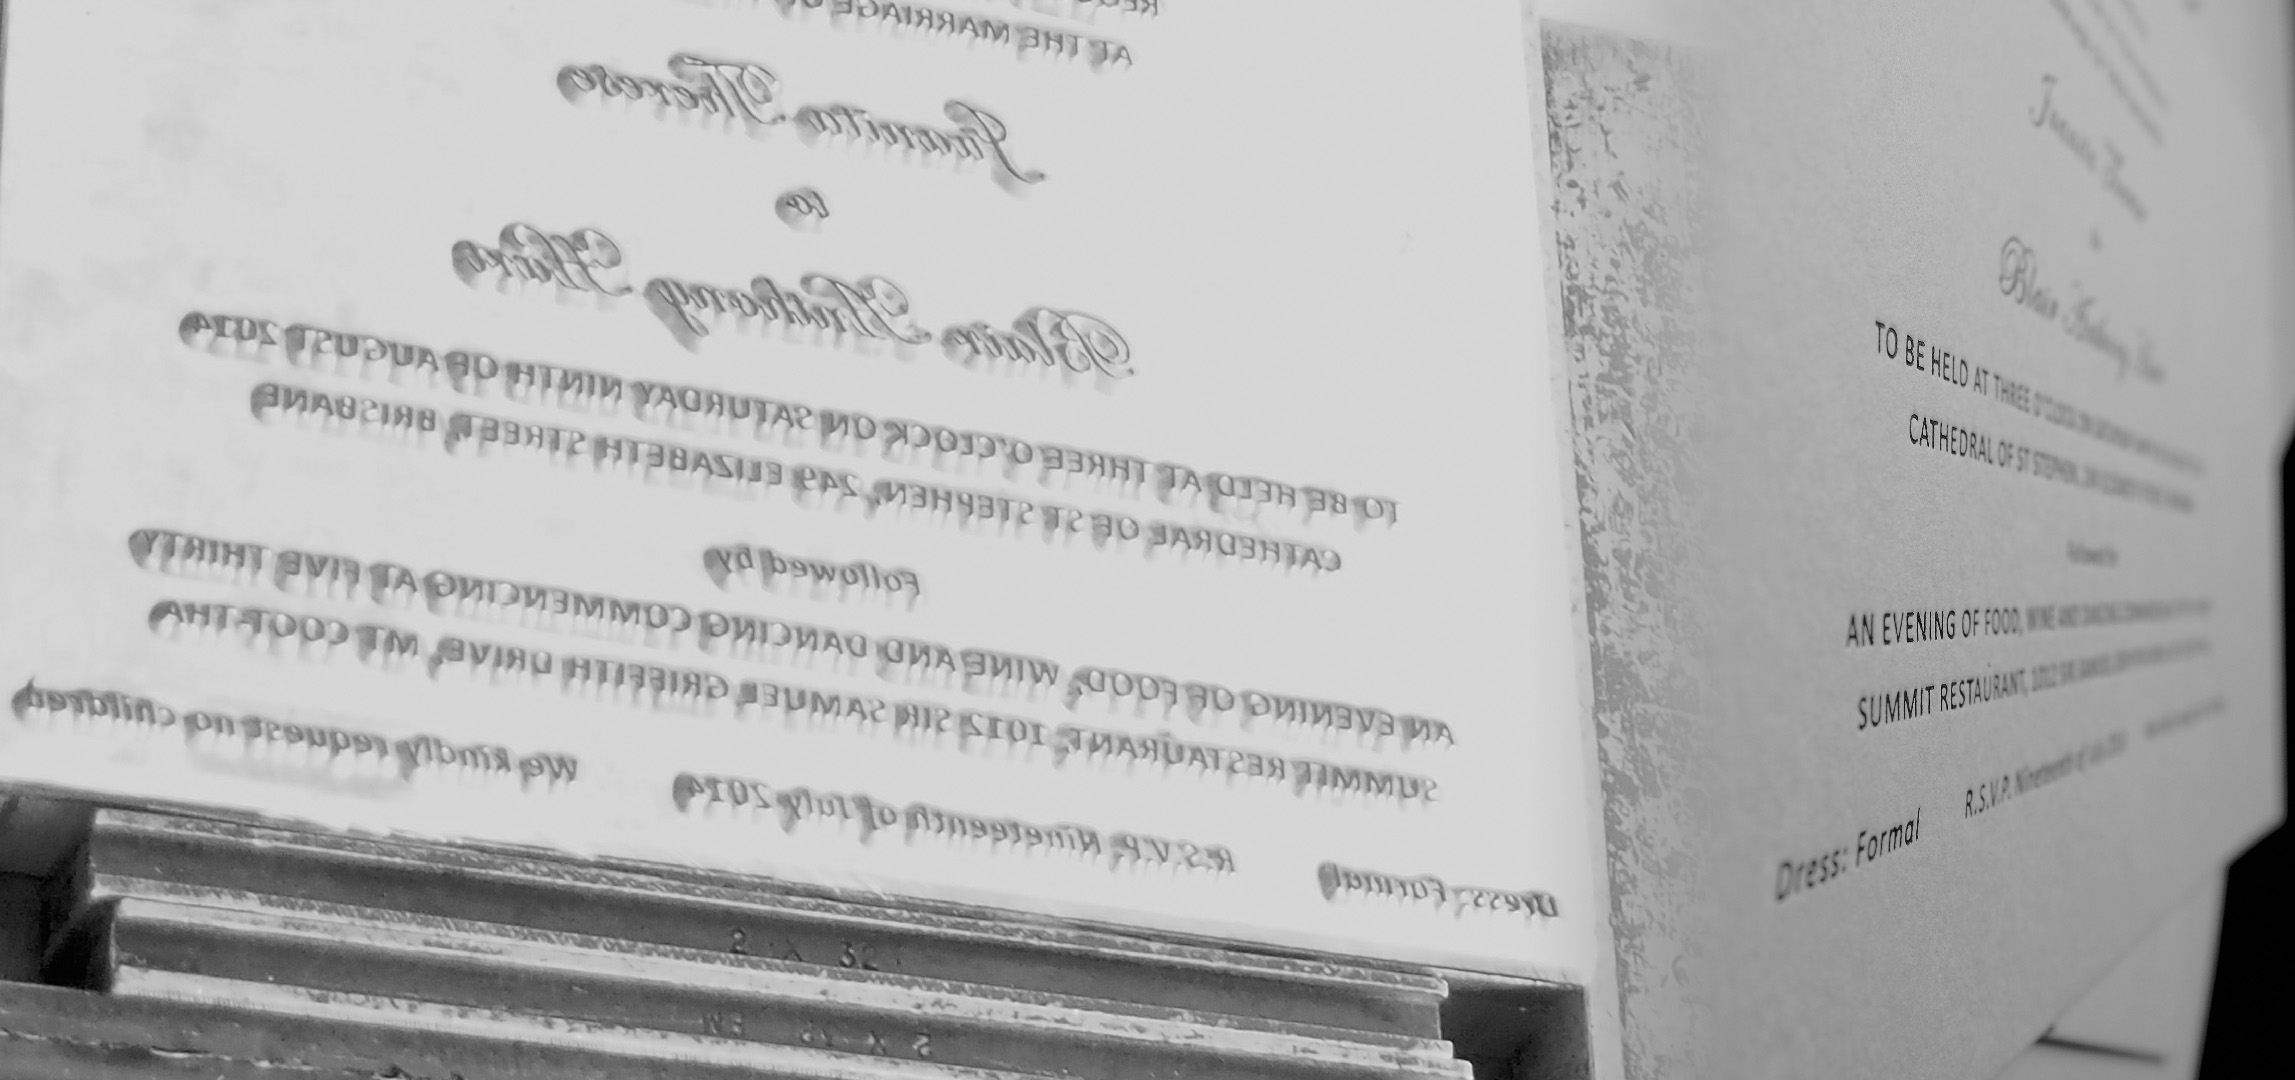 AT THE MARRIAGE OF
Juanita Therese
to
Blair Anthony Hare
TO BE HELD AT THREE O'CLOCK ON SATURDAY NINTH OF AUGUST 2014
CATHEDRAL OF ST STEPHEN, 249 ELIZABETH STREET, BRISBANE
Followed by
AN EVENING OF FOOD, WINE AND DANCING COMMENCING AT FIVE THIRTY
SUMMIT RESTAURANT, 1012 SIR SAMUEL GRIFFITH DRIVE, MT COOT-THA
Dress: Formal R.S.V.P. Nineteenth of July 2014 We kindly request no children
2 X 32
Blair Anthony Hare
TO BE HELD AT THREE O'CLOCK ON
CATHEDRAL OF ST STEPHEN,
AN EVENING OF FOOD, WINE AND DANCING
SUMMIT RESTAURANT, 1012
Dress: Formal R.S.V.P. Nineteenth of